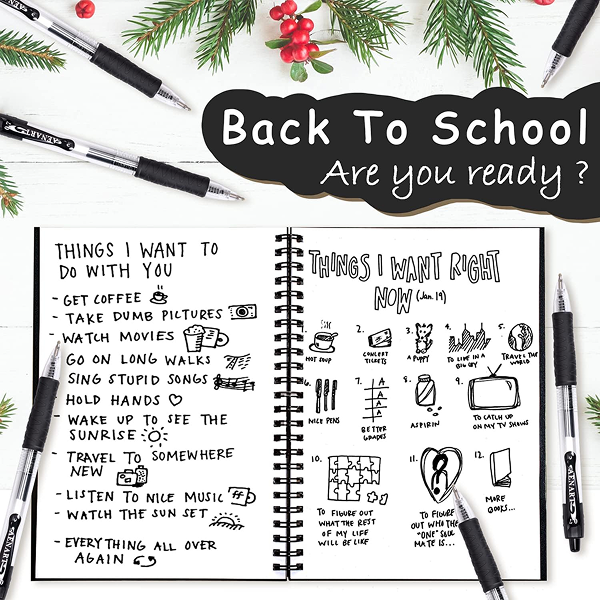 Back To School
Are you ready ?
AENART
AENART
THINGS I WANT TO
DO WITH YOU
- GET COFFEE
- TAKE DUMB PICTURES
- WATCH MOVIES
GO ON LONG WALKS
SING STUPID SONGS
HOLD HANDS ♡
- WAKE UP TO SEE THE
SUNRISE
- TRAVEL TO SOMEWHERE
NEW
- LISTEN TO NICE MUSIC
- WATCH THE SUN SET
- EVERYTHING ALL OVER
AGAIN
THINGS I WANT RIGHT
NOW (Jan. 19)
1.
HOT SOUP
2.
CONCERT
TICKETS
3.
A PUPPY
4.
TO LIVE IN A
BIG CITY
5.
TRAVEL THE
WORLD
6.
NICE PENS
7.
A
A
A
A
BETTER
GRADES
8.
ASPIRIN
9.
TO CATCH UP
ON MY TV SHOWS
10.
TO FIGURE OUT
WHAT THE REST
OF MY LIFE
WILL BE LIKE
11.
?
TO FIGURE
OUT WHO THE
"ONE" SOUL
MATE IS...
12.
MORE
BOOKS...
AENART
AENART